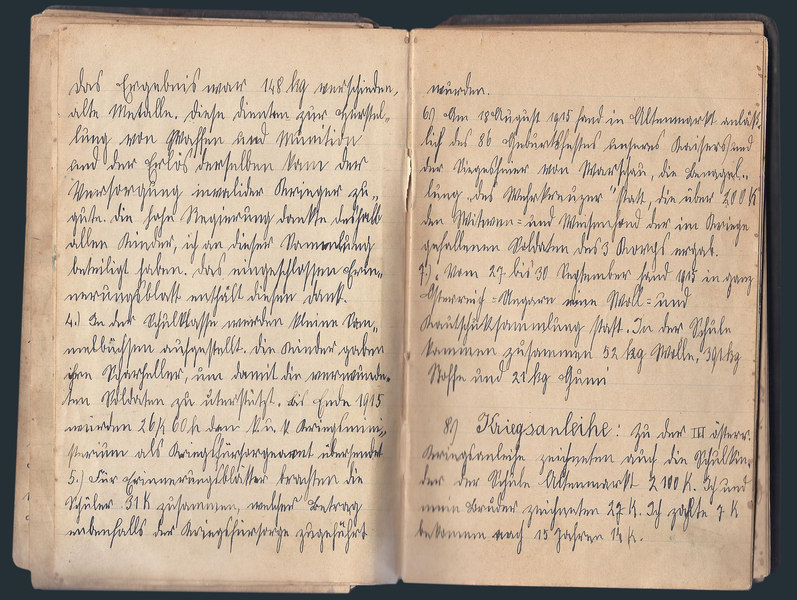 das Ergebnis war 148 kg verschieden,
alte Metalle. Diese dienten zur Herstel-
lung von Waffen und Munition
und der Erlös derselben kam der
Versorgung invalider Krieger zu-
gute. Die hohe Regierung dankte deshalb
allen Kinder, die an dieser Sammlung
beteiligt haben. Das eingeschlossen Erin-
nerungsblatt enthält diesen Dank.
4.) In der Schulklasse werden kleine Sam-
melbüchsen aufgestellt. Die Kinder gaben
ihre Scherflein, um damit die verwunde-
ten Soldaten zu unterstützt. Bis Ende 1915
wurden 26 K 60 h dem k. u. k Kriegsmini-
sterium als Kriegsfürsorgeamt übersendet
5.) Für Erinnerungsblätter brachten die
Schüler 31 K zusammen, welcher Betrag
ebenfalls der Kriegsfürsorge zugeführt
wurden.
6) Am 18 August 1915 fand in Altenmarkt anläß-
lich des 86 Geburtsfestes unseres Kaisers und
der Siegesfeier von Warschau, die
lung des Wehrkreuzes statt, die über 200 K
den Witwen- und Waisenfond der im Kriege
gefallenen Soldaten des 3 Korps ergab.
7.) Vom 27 bis 30 September fand 1915 in ganz
Österreich-Ungarn eine Woll- und
Kautschuksammlung statt. In der Schule
kammen zusammen 52 kg Wolle, 39 kg
Stoffe und 21 kg Gumi
8) Kriegsanleihe: Zu der III österr.
Kriegsanleihe zeichneten auch die Schulkin-
der der Schule Altenmarkt 2100 K. Ich und
mein Bruder zeichneten 27 K. Ich zahlte 7 K
bekommen nach 15 Jahren 14 K.